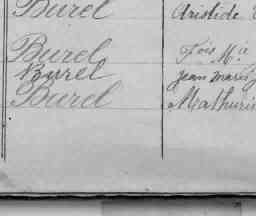 Burel Aristide
Burel Fois Mie
Burel Jean Marie
Burel Mathurin